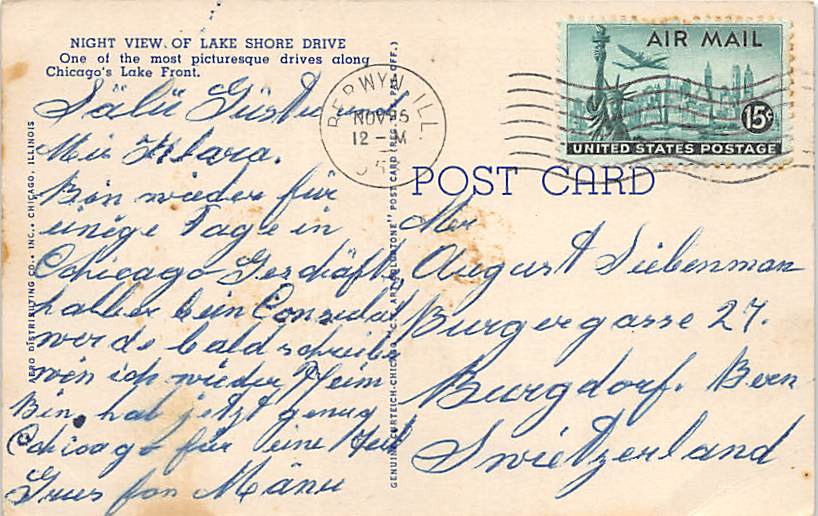 NIGHT VIEW OF LAKE SHORE DRIVE
One of the most picturesque drives along
Chicago's Lake Front.
Sälü Güstu und
Mis Klara.
Bin wieder für
einige Tage in
Chicago Geschäfts
halber bein Consulat
werde bald schreibe
wen ich wieder Heim
Bin, hab jetzt genug
Chicago für eine Zeit
Grus fon Mänu
AERO DISTRIBUTING CO., INC., CHICAGO, ILLINOIS
GENUINE CURTEICH-CHICAGO "C.T. ART-COLORTONE" POST CARD (REG. U.S. PAT. OFF.)
BERWYN, ILL.
NOV 25
12 - M
AIR MAIL
15¢
UNITED STATES POSTAGE
POST CARD
Mr
August Siebenman
Burgergasse 27.
Burgdorf. Bern
Swietzerland